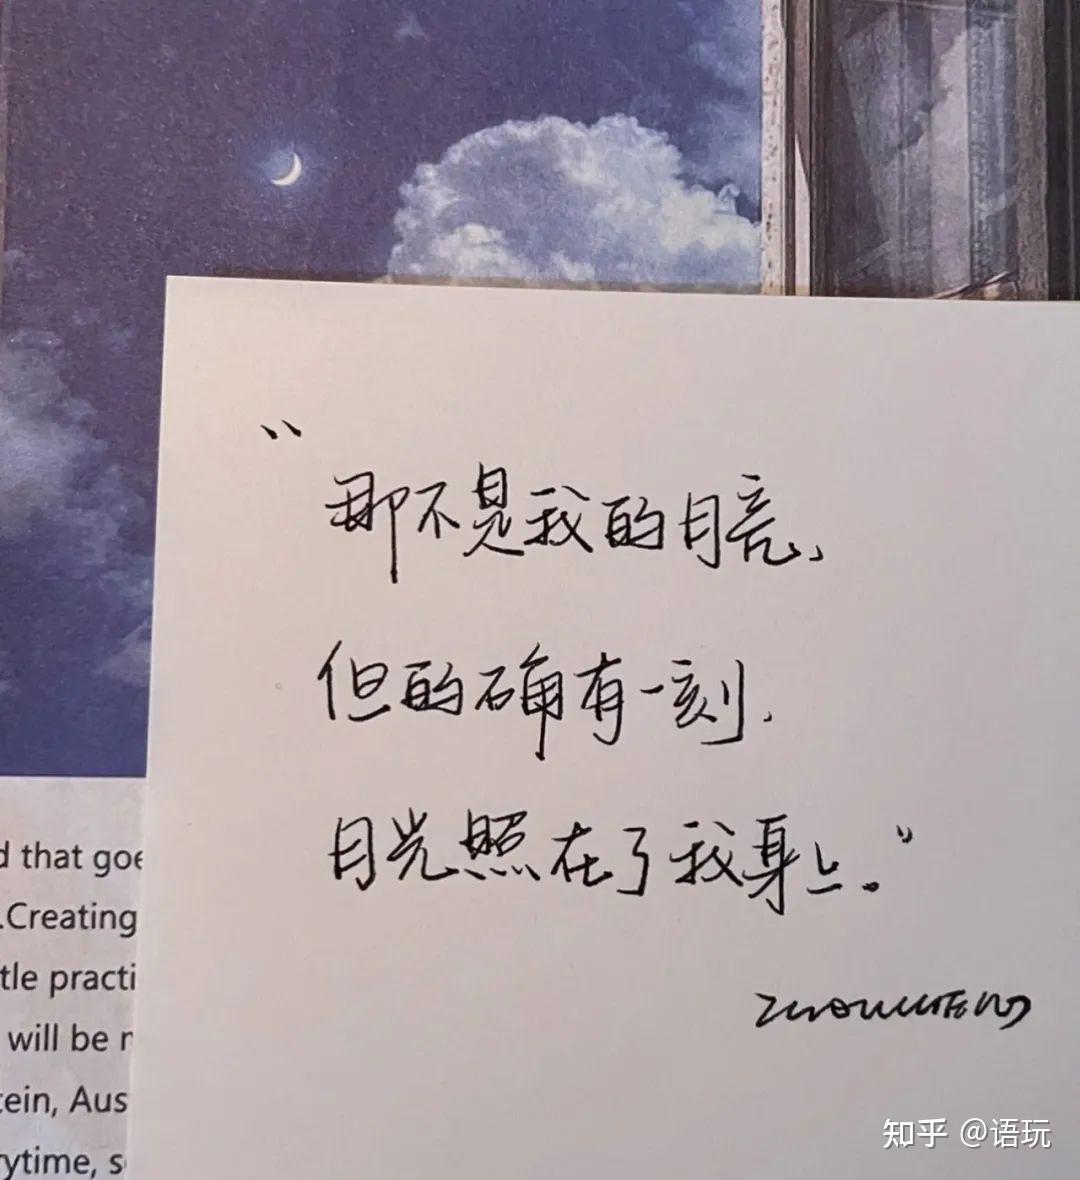 “那不是我的月亮、
但的确有一刻.
月光照在了我身上。”
d that goe
.Creating
tle practi
will be
tein, Aus
rytime, s
知乎 @语玩